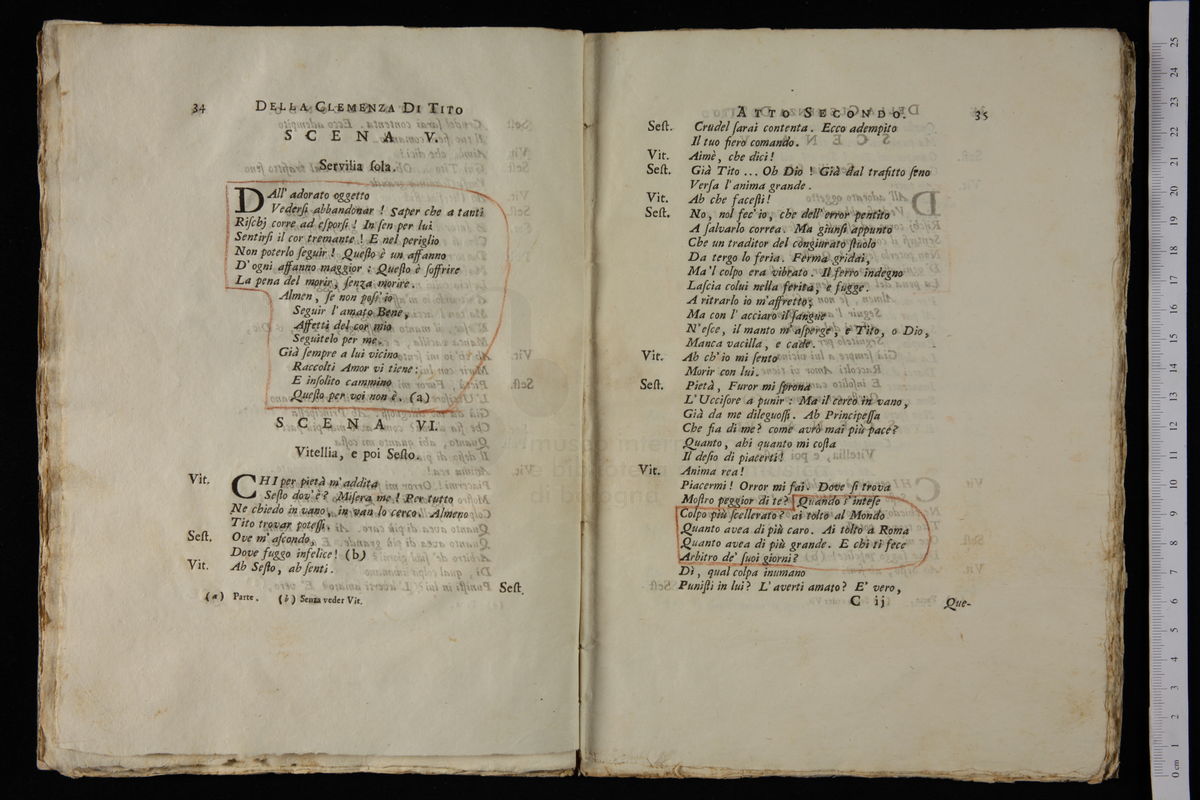 34 DELLA CLEMENZA DI TITO
SCENA V.
Servilia ſola.
DAll' adorato oggetto
Vederſi abbandonar ! Saper che a tanti
Riſchj corre ad eſporſi ! In ſen per lui
Sentirſi il cor tremante ! E nel periglio
Non poterlo ſeguir ! Queſto è un affanno
D' ogni affanno maggior : Queſto è ſoffrire
La pena del morir, ſenza morire.
Almen, ſe non poſſ' io
Seguir l' amato Bene,
Affetti del cor mio
Seguitelo per me.
Già ſempre a lui vicino
Raccolti Amor vi tiene :
E inſolito cammino
Queſto per voi non è. (a)
SCENA VI.
Vitellia, e poi Seſto.
Vit. CHI per pietà m' addita
Seſto dov' è ? Miſera me ! Per tutto
Ne chiedo in vano, in van lo cerco. Almeno
Tito trovar poteſſi.
Seſt. Ove m' aſcondo,
Dove fuggo infelice ! (b)
Vit. Ah Seſto, ah ſenti.
Seſt.
(a) Parte. (b) Senza veder Vit.
ATTO SECONDO. 35
Seſt. Crudel ſarai contenta. Ecco adempito
Il tuo fiero comando.
Vit. Aimè, che dici !
Seſt. Già Tito ... Oh Dio ! Già dal trafitto ſeno
Verſa l' anima grande.
Vit. Ah che faceſti !
Seſt. No, nol fec' io, che dell' error pentito
A ſalvarlo correa. Ma giunſi appunto
Che un traditor del congiurato ſtuolo
Da tergo lo feria. Ferma gridai,
Ma'l colpo era vibrato. Il ferro indegno
Laſcia colui nella ferita, e fugge.
A ritrarlo io m'affretto;
Ma con l' acciaro il ſangue
N'eſce, il manto m' aſperge, e Tito, o Dio,
Manca vacilla, e cade.
Vit. Ah ch'io mi ſento
Morir con lui.
Seſt. Pietà, Furor mi ſprona
L' Ucciſore a punir : Ma il cerco in vano,
Già da me dileguoſſi. Ah Principeſſa
Che fia di me ? come avrò mai più pace ?
Quanto, ahi quanto mi coſta
Il deſio di piacerti !
Vit. Anima rea !
Piacermi ! Orror mi fai. Dove ſi trova
Moſtro peggior di te ? Quando s' inteſe
Colpo più ſcellerato ? ai tolto al Mondo
Quanto avea di più caro. Ai tolto a Roma
Quanto avea di più grande. E chi ti fece
Arbitro de' ſuoi giorni ?
Dì, qual colpa inumano
Puniſti in lui ? L' averti amato ? E' vero,
C ij Que-
museo internazionale
e biblioteca della musica
di bologna
25
24
23
22
21
20
19
18
17
16
15
14
13
12
11
10
9
8
7
6
5
4
3
2
1
0 cm